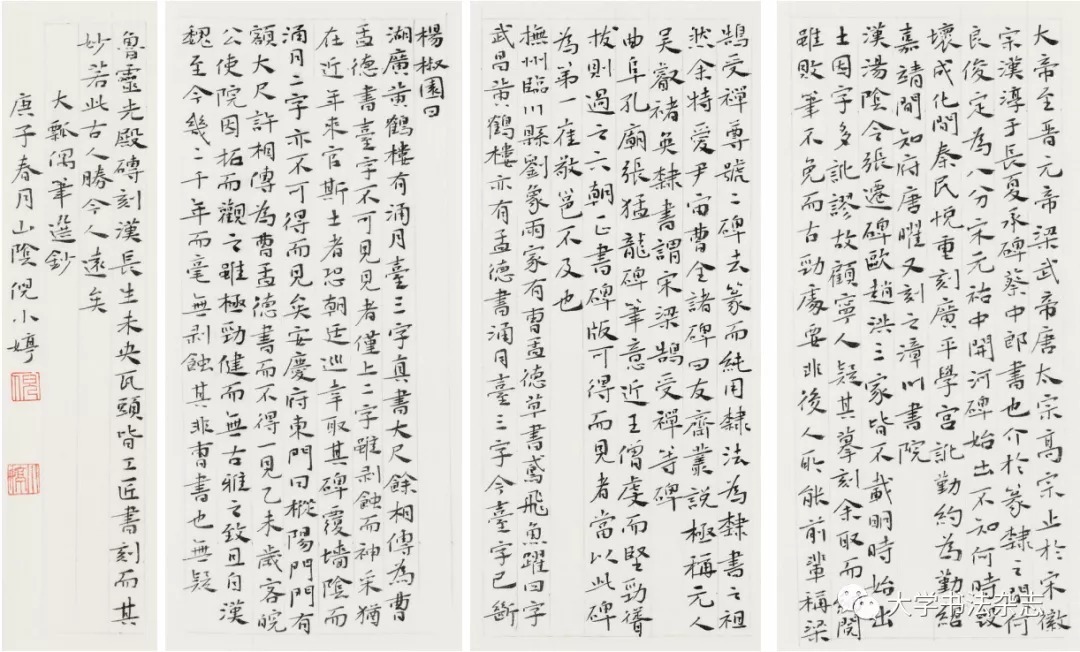 大帝至晋元帝梁武帝唐太宗高宗止於宋徽
宗漢淳于長夏承碑蔡中郎書也介於篆隸之間何
良俊定為八分宋元祐中開河碑始出不知何時毀
壞成化間秦民悅重刻廣平學宮訛勤約為勤紹
嘉靖間知府唐曜又刻之漳川書院
漢湯陰令張遷碑歐趙洪三家皆不載明時始出
土因字多訛謬故顧寧人疑其摹刻余取而細閱
雖敗筆不免而古勁處要非後人所能前輩稱梁
鵠受禪尊號二碑去篆而純用隸法為隸書之祖
然余特愛尹宙曹全諸碑曰友齋叢說極稱元人
吳叡褚奐隸書謂宋梁鵠受禪等碑
曲阜孔廟張猛龍碑筆意近王僧虔而堅勁聳
拔則過之六朝正書碑版可得而見者當以此碑
為第一崔敬邕不及也
撫州臨川縣劉象雨家有曹孟德草書鳶飛魚躍四字
武昌黃鶴樓亦有孟德書涌月臺三字今臺字已斷
楊椒園曰
湖廣黃鶴樓有涌月臺三字真書大尺餘相傳為曹
孟德書臺字不可見見者僅上二字雖剥蝕而神采猶
在近年來官斯土者恐朝廷巡幸取其碑覆墻陰而
涌月二字亦不可得而見矣安慶府東門曰樅陽門門有
額大尺許相傳為曹孟德書而不得一見乙未歲客皖
公使院因拓而觀之雖極勁健而無古雅之致且自漢
魏至今幾二千年而毫無剥蝕其非曹書也無疑
魯靈光殿磚刻漢長生未央瓦頭皆工匠書刻而其
妙若此古人勝今人遠矣
大瓢偶筆選鈔
庚子春月山陰倪小婷
大学书法杂志